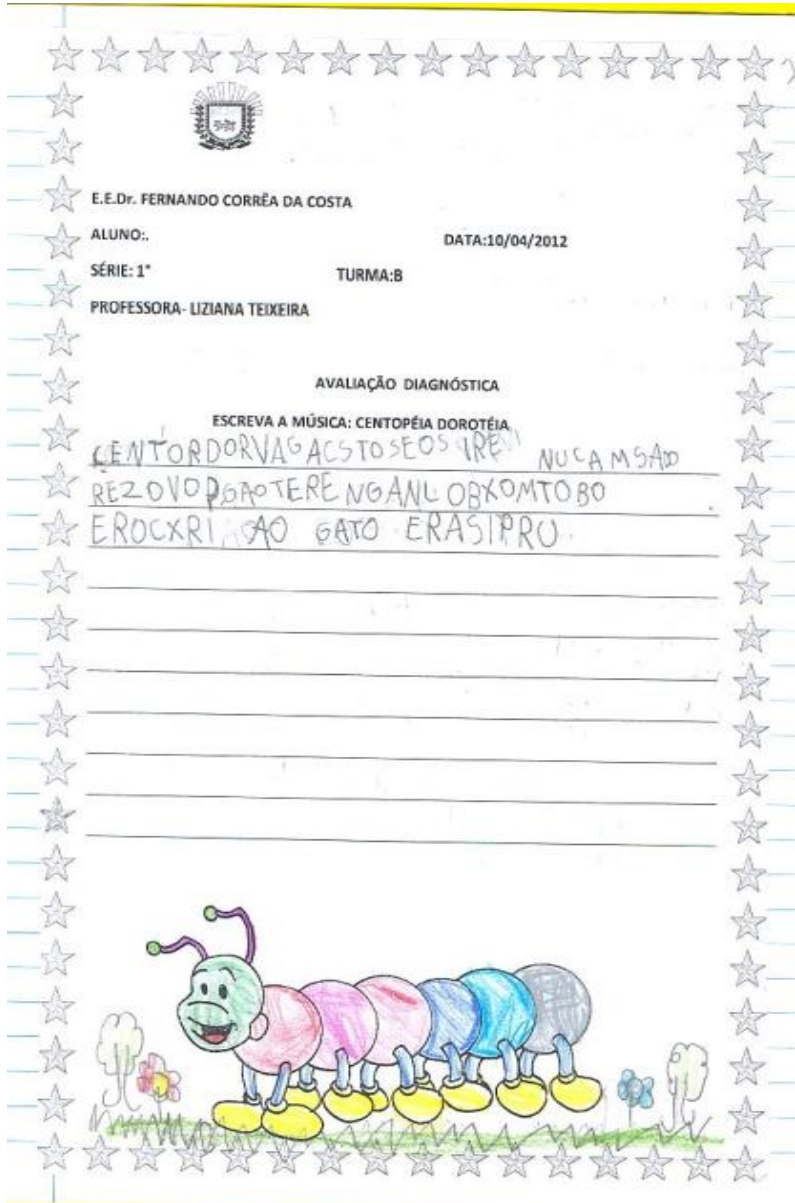 E.E.Dr. FERNANDO CORRÊA DA COSTA
ALUNO:. DATA:10/04/2012
SÉRIE: 1° TURMA:B
PROFESSORA- LIZIANA TEIXEIRA
AVALIAÇÃO DIAGNÓSTICA
ESCREVA A MÚSICA: CENTOPÉIA DOROTÉIA
CENTORDORVAGACSTOSEOS IREVI NUCAMSAD
REZOVOPGAOTERE NGANLOBXOMTOBO
EROCXRI AO GATO ERASIPRU